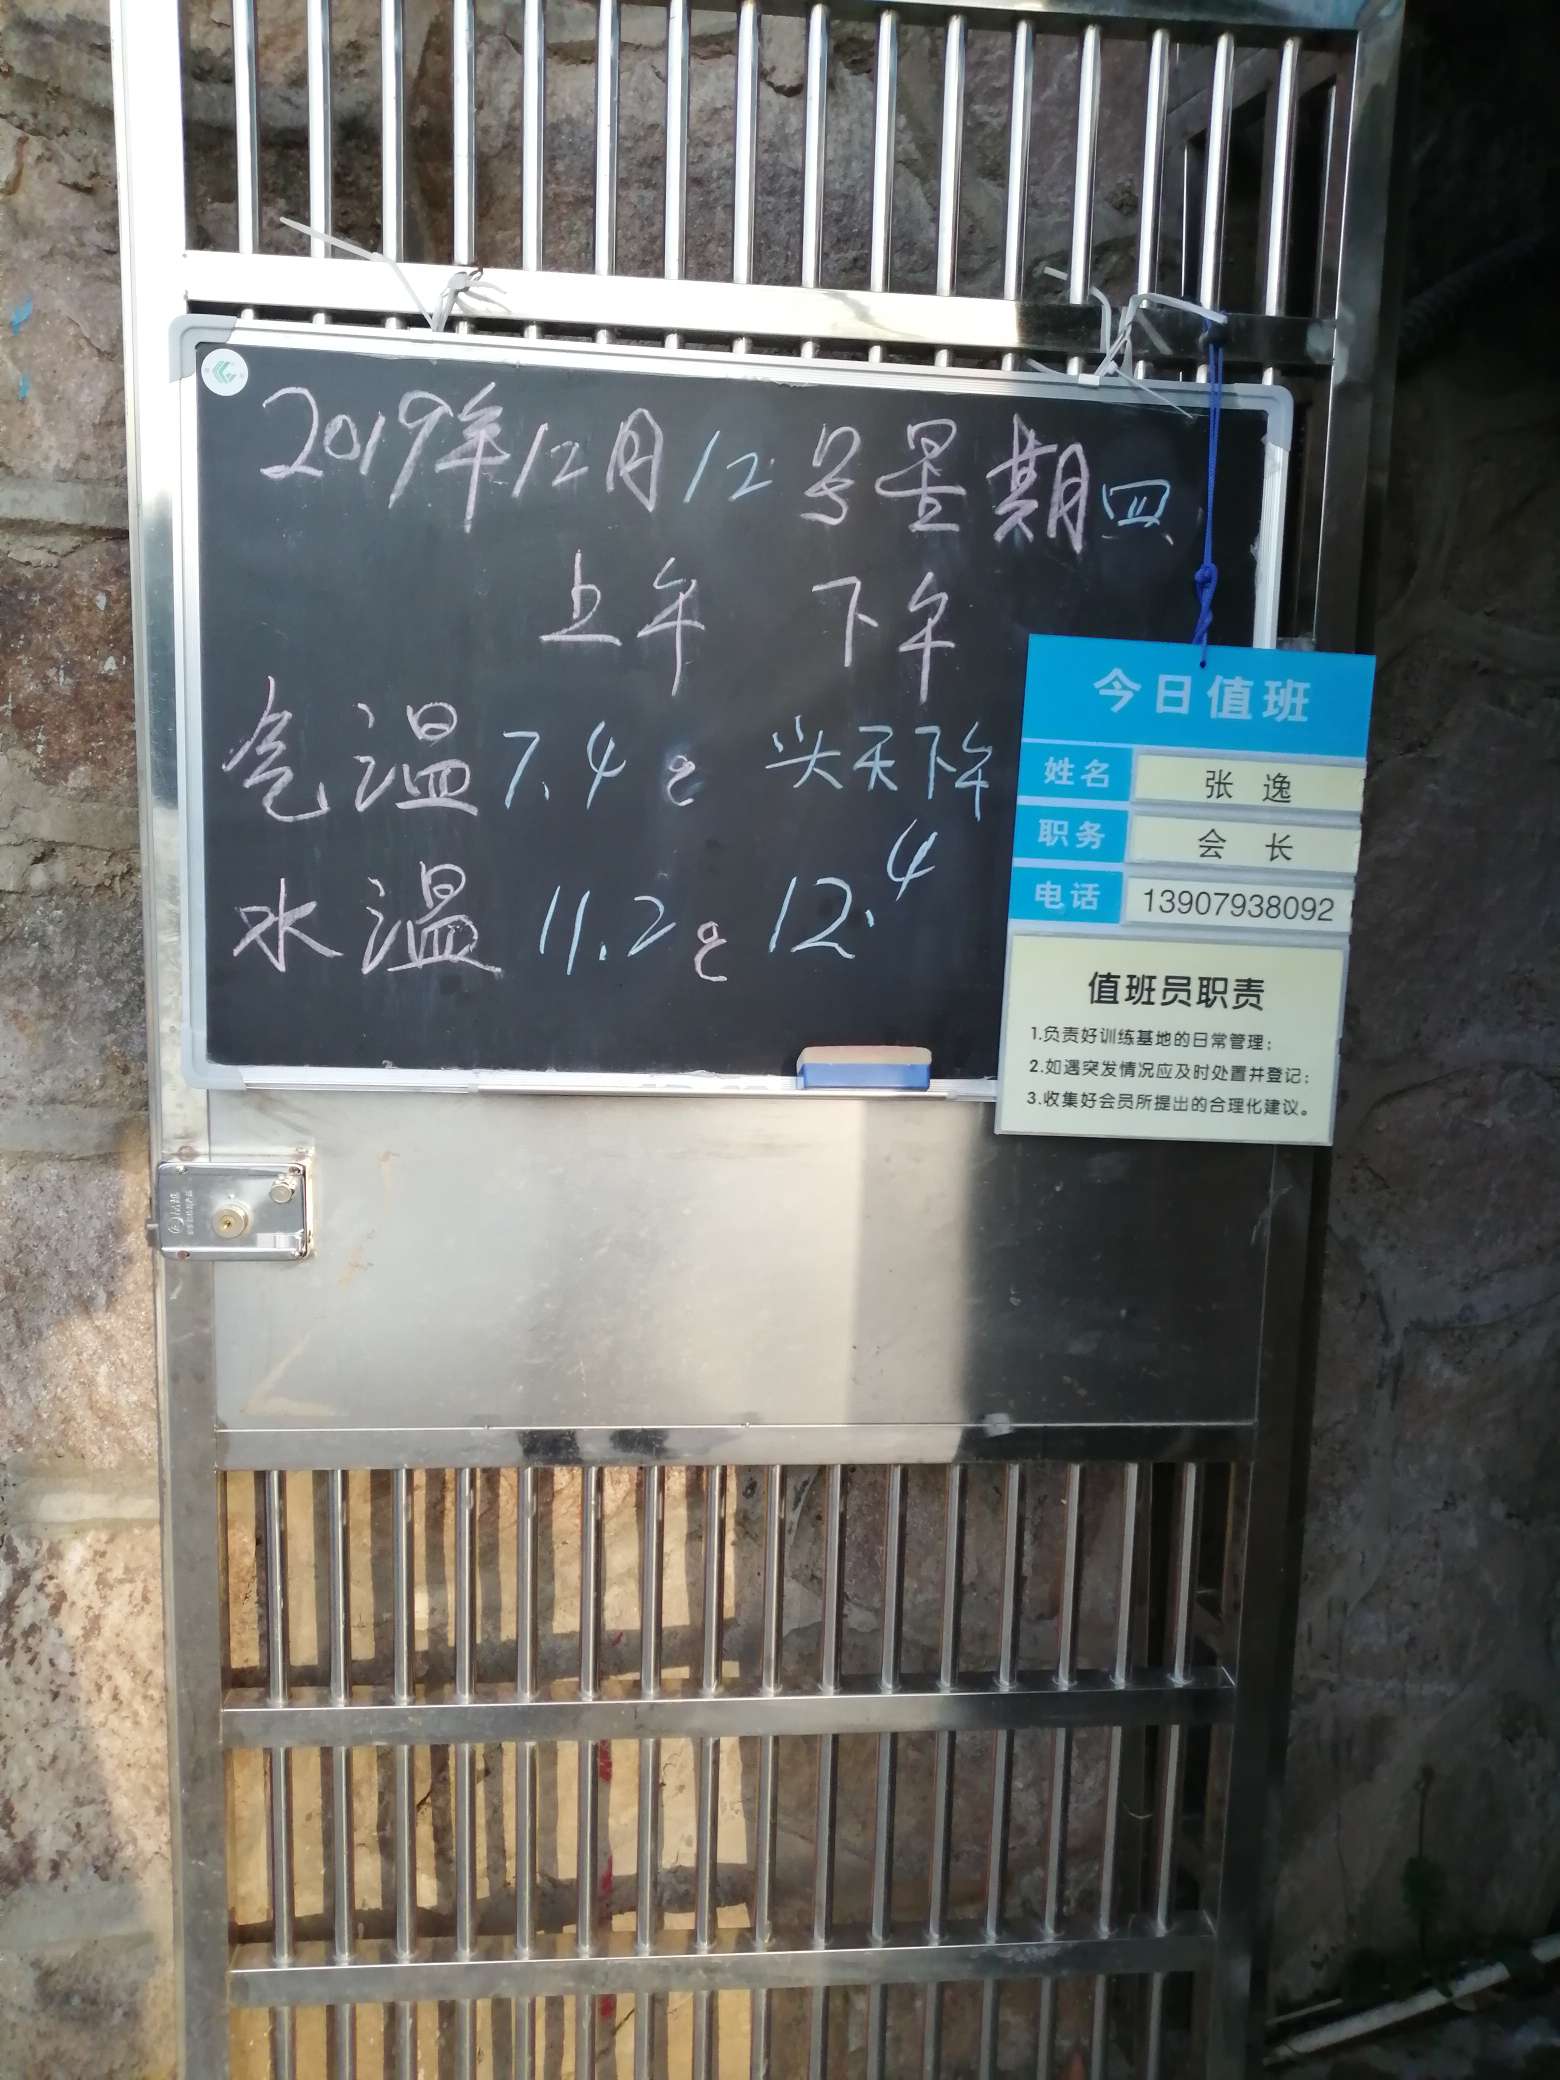 2019年12月12号星期四
上午 下午
气温 7.4℃ 头天下午
水温 11.2℃ 12.4
今日值班
姓名 张逸
职务 会长
电话 13907938092
值班员职责
1.负责好训练基地的日常管理；
2.如遇突发情况应及时处置并登记；
3.收集好会员所提出的合理化建议。